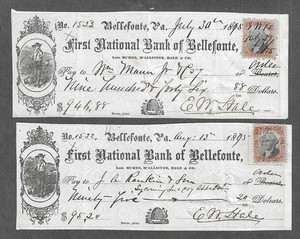 No. 1523 Bellefonte, Pa. July 30th 1895
First National Bank of Bellefonte,
Late HUMES, McALLISTER, HALE & CO.
Pay to Wm or Order
Nine hundred forty Six 88 Dollars
$946,88 E W Hale
No. 1532 Bellefonte, Pa. Aug 13th 1895
First National Bank of Bellefonte,
Late HUMES, McALLISTER, HALE & CO.
Pay to J. A. Rankin & Son or Order
Ninety five 20 Dollars
$95 20 E W Hale